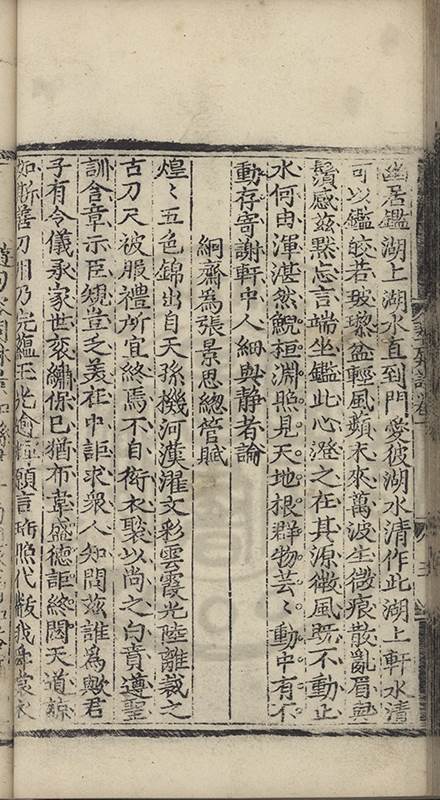 幽居鑑湖上湖水直到門愛彼湖水清作此湖上軒水清
可以鑑皎若玻瓈盆輕風蘋末來萬波生微痕散亂眉與
鬚感茲黙忘言端坐鑑此心澄之在其源微風既不動止
水何由渾湛然鯢桓淵照見天地根群物芸〻動中有不
動存寄謝軒中人細與静者論
絅齋為張景思總管賦
煌〻五色錦出自天孫機河漢濯文彩雲霞光陸離裁之
古刀尺被服禮所宜終焉不自衒衣褧以尚之白賁遵聖
訓含章示臣䂓豈乏美在中詎求衆人知問茲誰為歟君
子有令儀承家世衮繡保己猶布韋盛德詎終閟天道諒
如斯善刀用乃完韞玉光願言昭代黻我